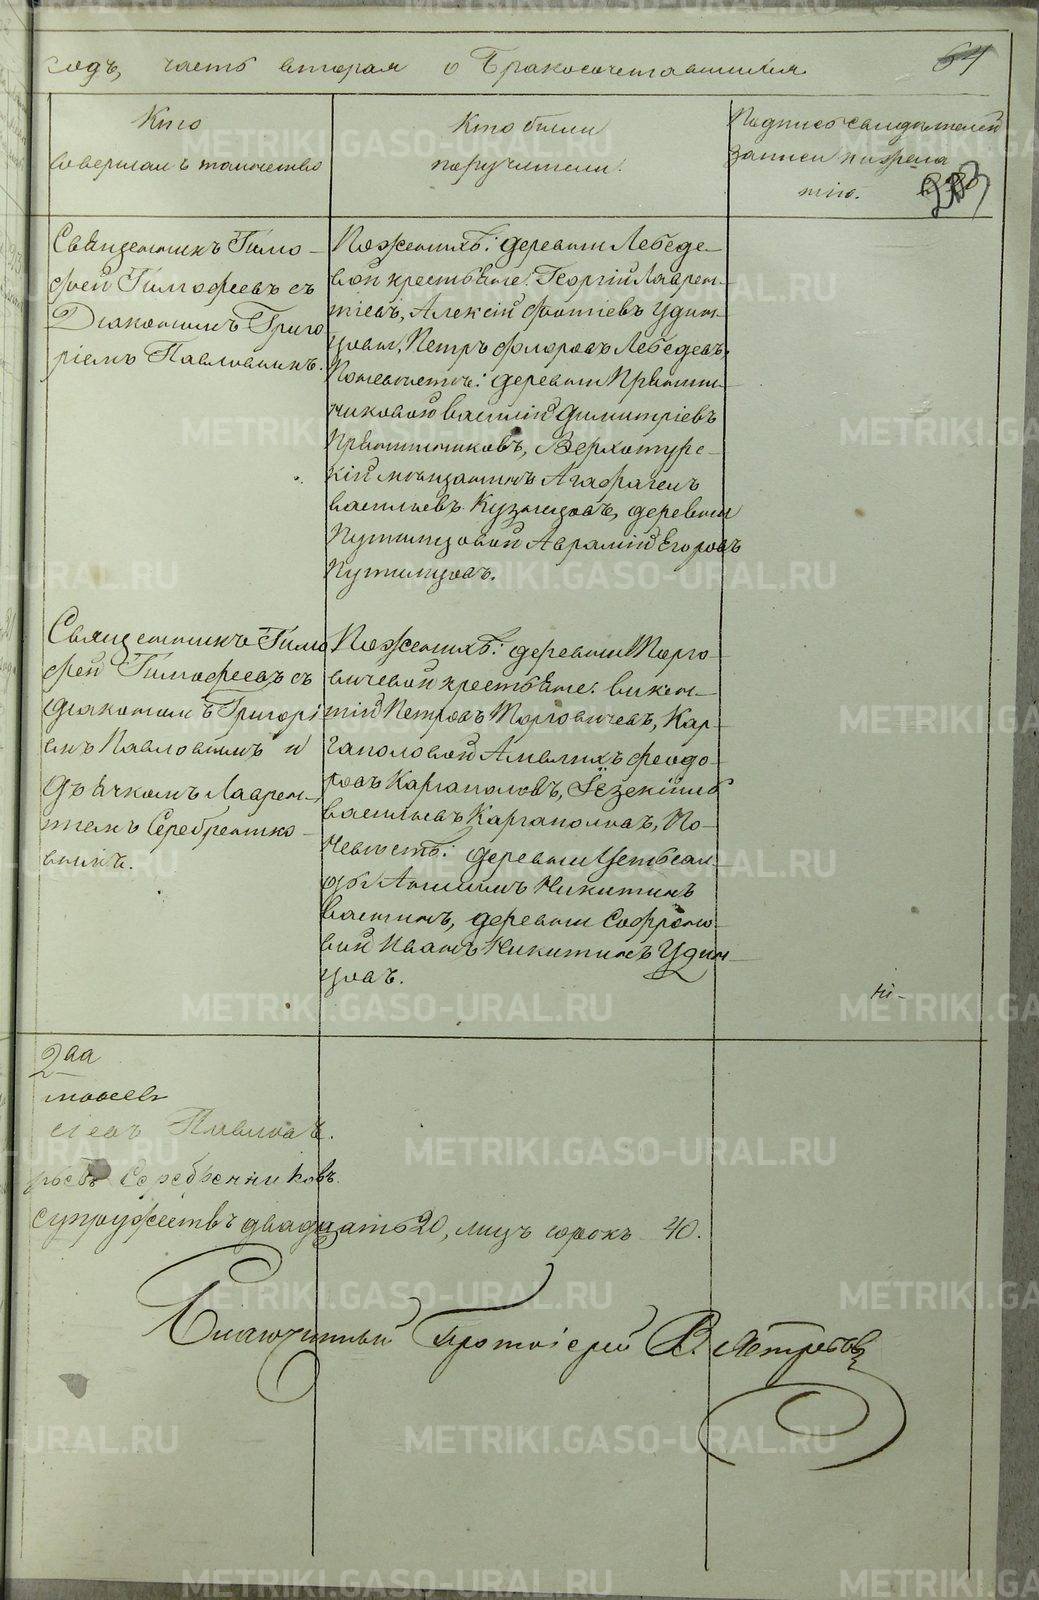 годъ, часть вторая о Бракосочетавшихся
64
Кто
совершалъ таинство
Кто были
поручители.
Подпись свидѣтелей
записи по жела
нію.
203
Священникъ Тимо-
фей Тимофеевъ съ
Діакономъ Григо
ріемъ Павловымъ.
По женихѣ: деревни Лебеде-
вой крестьяне: Георгій Лаврен-
тіевъ, Алексій Фотіевъ Удин-
цовы, Петръ Флоровъ Лебедевъ.
По невѣстѣ: деревни Пряни-
чниковой Василій Димитріевъ
Пряничниковъ, Верхотурс-
кій мѣщанинъ Агафангелъ
Васильевъ Кузнецовъ, деревни
Путимцовой Авраамій Егоровъ
Путимцовъ.
Священникъ Тимо
фей Тимофеевъ съ
діакономъ Григорі
емъ Павловымъ и
Дьячкомъ Лаврен-
тіемъ Серебренико-
вымъ.
По женихѣ: деревни Морго-
вичевой крестьяне: Викен-
тій Петровъ Мурговичевъ, Кар-
гаполовой Амвлихъ Феодо-
ровъ Каргаполовъ, Іезекіиль
Васильевъ Каргаполовъ, По
невѣстѣ: деревни
Никитинъ
Васинъ, деревни Софроно-
вой Иванъ Никитинъ Удин-
цовъ.
2аа
Павловъ.
Серебренниковъ.
супружествъ двадцать 20, лицъ сорокъ 40.
Благочинный Протоіерей В. Ястребовъ